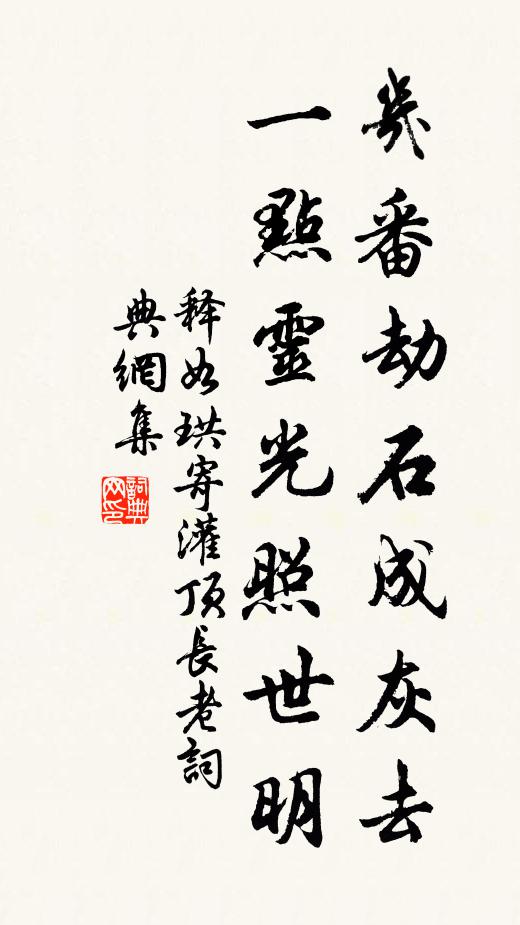 幾番劫石成灰去
一點靈光照世明
释如珙寄灌頂長老詞
典網集
詞典网印